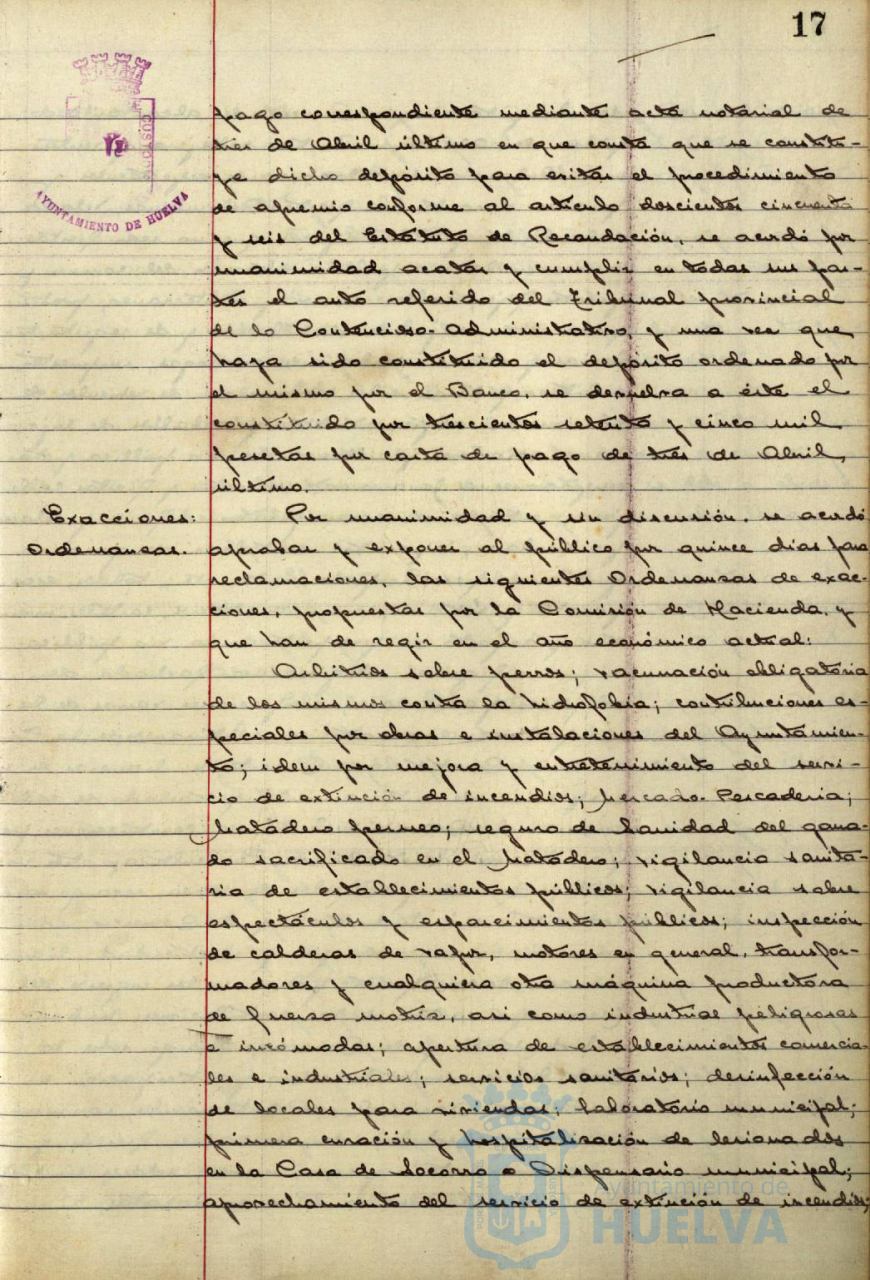 17
CUSTODIA
AYUNTAMIENTO DE HUELVA
pago correspondiente mediante acta notarial de
tres de Abril último en que consta que se constitu-
ye dicho depósito para evitar el procedimiento
de apremio conforme al artículo doscientos cincuenta
y seis del Estatuto de Recaudación, se acordó por
unanimidad acatar y cumplir en todas sus par-
tes el auto referido del Tribunal provincial
de lo Contencioso-administrativo, y una vez que
haya sido constituido el depósito ordenado por
el mismo por el Banco, se devuelva a éste el
constituido por trescientas setenta y cinco mil
pesetas por carta de pago de tres de Abril,
último.
Exacciones:
Ordenanzas.
Por unanimidad y sin discusión, se acordó
aprobar y exponer al público por quince días para
reclamaciones, las siguientes Ordenanzas de exac-
ciones, propuestas por la Comisión de Hacienda, y
que han de regir en el año económico actual:
Arbitrios sobre perros; vacunación obligatoria
de los mismos contra la hidrofobia; contribuciones es-
peciales por obras e instalaciones del Ayuntamien-
to; idem por mejora y entretenimiento del servi-
cio de extinción de incendios; Mercado-Pescadería;
Matadero permeo; seguro de Sanidad del gana-
do sacrificado en el Matadero; vigilancia sanita-
ria de establecimientos públicos; vigilancia sobre
espectáculos y esparcimientos públicos; inspección
de calderas de vapor, motores en general, transfor-
madores y cualquiera otra máquina productora
de fuerza motriz, asi como industrias peligrosas
e incómodas; apertura de establecimientos comercia-
les e industriales; servicios sanitarios; desinfección
de locales para viviendas; laboratorio municipal;
primera curación y hospitalización de lesionados
en la Casa de Socorro o Dispensario municipal;
aprovechamiento del servicio de extinción de incendios;
Ayuntamiento de
HUELVA